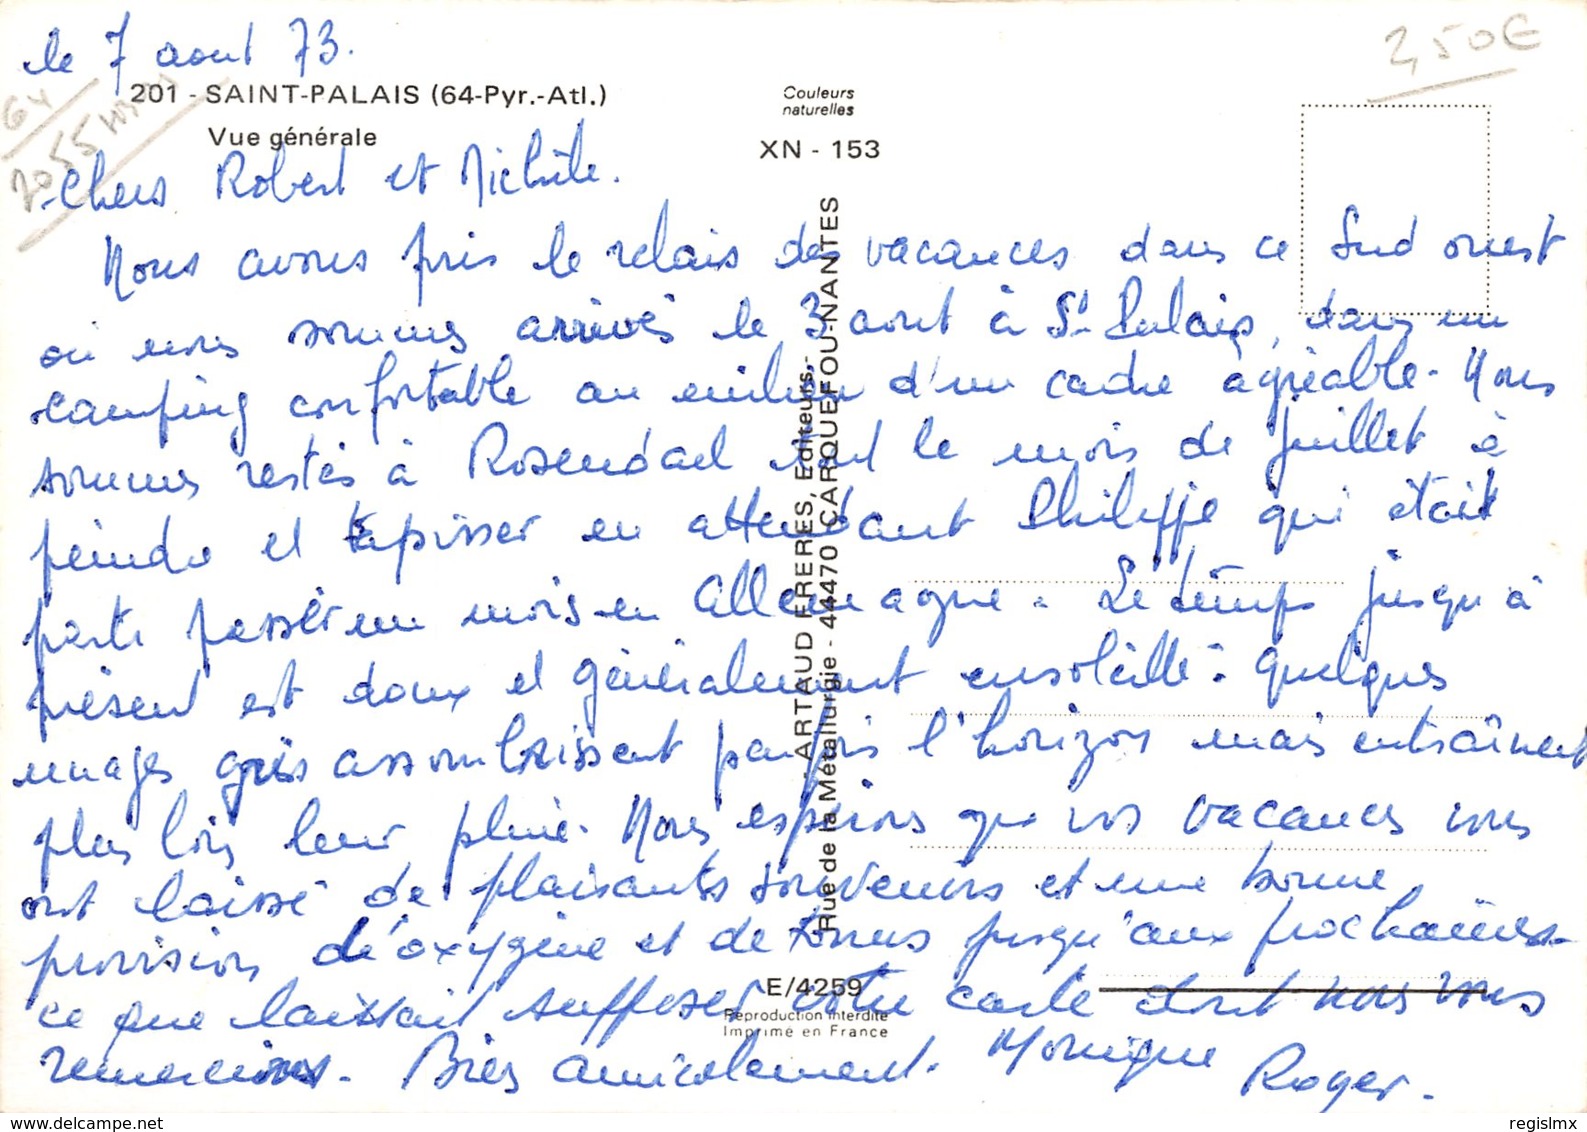 le 7 aout 73.
2,50€
64
201 - SAINT-PALAIS (64-Pyr.-Atl.)
Vue générale
Couleurs
naturelles
XN - 153
Chers Robert et Michèle.
Nous avons pris le relais des vacances dans ce Sud ouest
où nous sommes arrivés le 3 aout à St Palais, dans un
camping confortable au milieu d'un cadre agréable. Nous
sommes restés à Rosendael tout le mois de juillet à
peindre et tapisser en attendant Philippe qui était
parti passer un mois en Allemagne. Le temps jusqu'à
présent est doux et généralement ensoleillé. Quelques
nuages gris assombrissent parfois l'horizon mais entraînent
plus loin leur pluie. Nous espérons que vos vacances vous
ont laissé de plaisants souvenirs et une bonne
provision d'oxygène et de tonus jusqu'aux prochaines
ce que laissait supposer votre carte dont nous vous
remercions. Bien amicalement. Monique
Roger.
ARTAUD FRERES, Editeurs.-
Rue de la Métallurgie - 44470 CARQUEFOU-NANTES
E/4259
Reproduction interdite
Imprimé en France
regislmx
www.delcampe.net